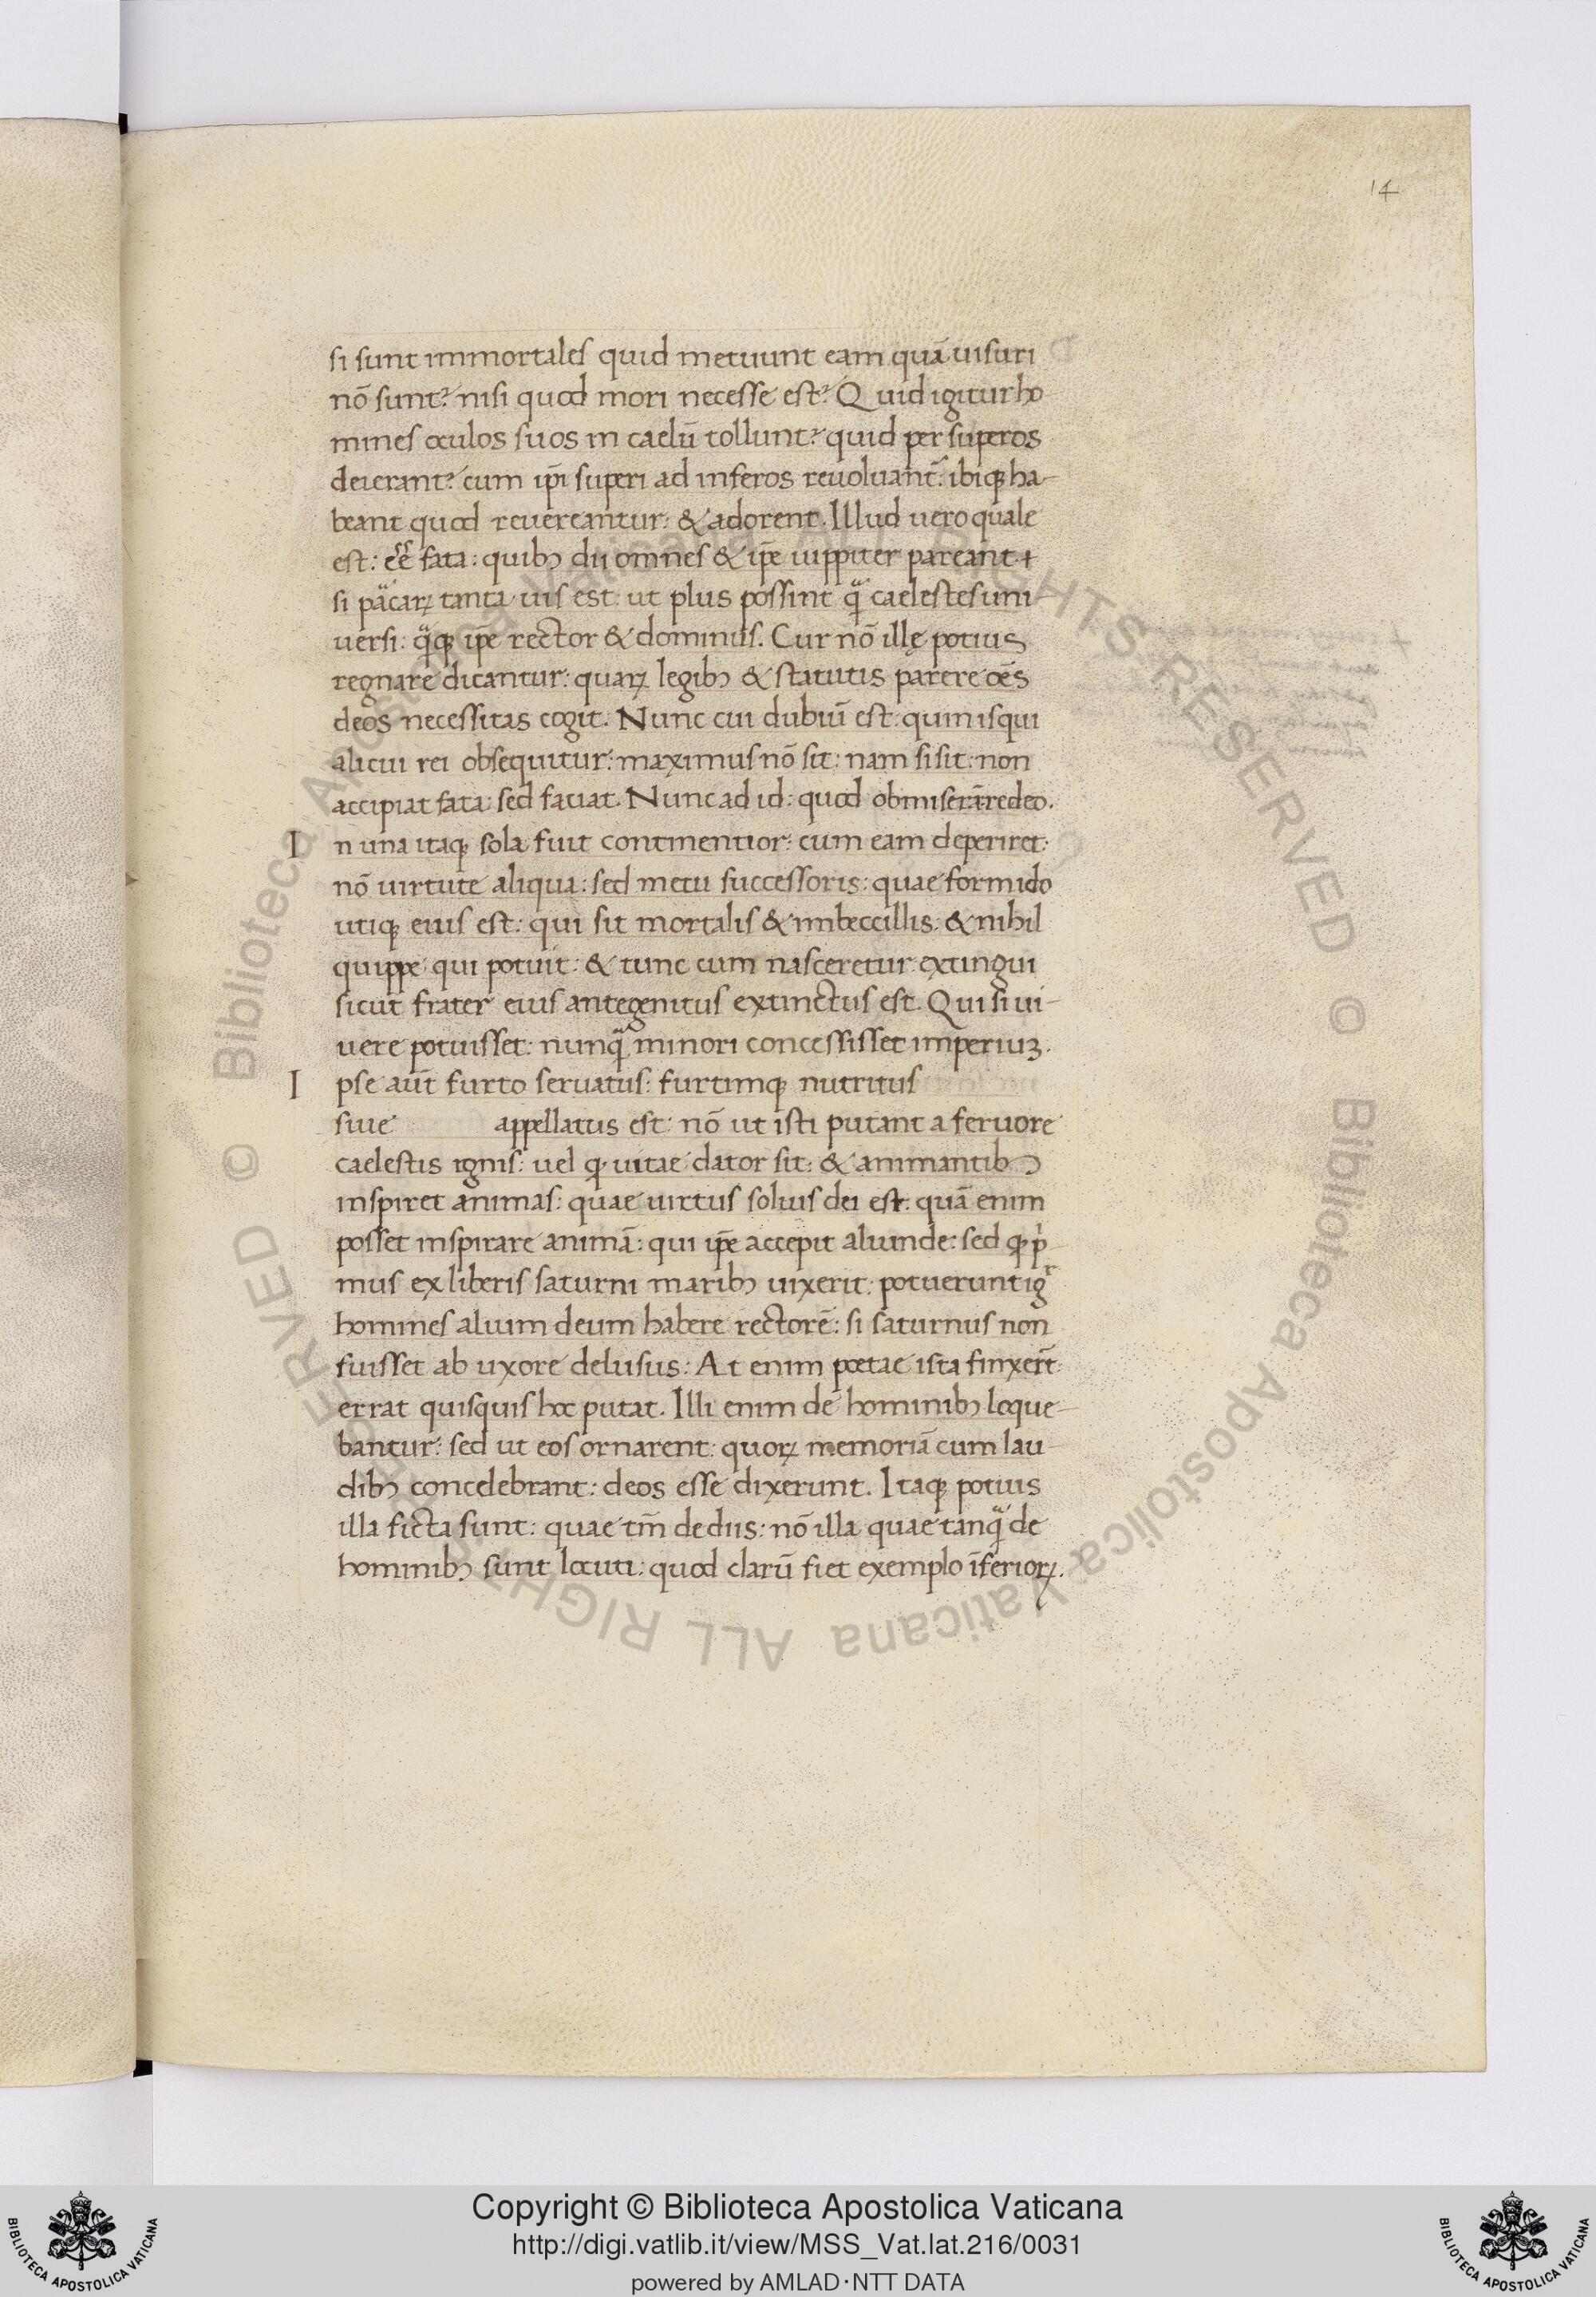 14
si sunt immortales quid metuunt eam quā uisuri
nō sunt? nisi quod mori necesse est? Quid igitur ho
mines oculos suos in caelū tollunt? quid per superos
deierant? cum ip̄i superi ad inferos reuoluant᷑: ibiqꝫ ha-
beant quod reuereantur: & adorent. Illud uero quale
est: eē fata: quibꝰ dii omnes & ip̄e iuppiter pareant
si parcaꝝ tanta uis est: ut plus possint q̃ caelestes uni
uersi: q̃qꝫ ip̄e rector & dominus. Cur nō illę potius
regnare dicantur: quaꝝ legibꝰ & statutis parere oēs
deos necessitas cogit. Nunc cui dubiū est: quin is qui
alicui rei obsequitur: maximus nō sit: nam si sit: non
accipiat fata: sed faciat. Nunc ad id: quod obmiserā redeo.
In una itaqꝫ sola fuit continentior: cum eam deperiret:
nō uirtute aliqua: sed metu successoris: quae formido
utiqꝫ eius est: qui sit mortalis & imbeccillis: & nihil
quippe qui potuit: & tunc cum nasceretur extingui
sicut frater eius antegenitus extinctus est. Qui si ui-
uere potuisset: nunq̃ minori concessisset imperiuꝫ.
Ipse aūt furto seruatus: furtimqꝫ nutritus
siue appellatus est: nō ut isti putant a feruore
caelestis ignis: uel ꝙ uitae dator sit: & animantibꝰ
inspiret animas: quae uirtus solius dei est: quā enim
posset inspirare animā: qui ip̄e accepit aliunde: sed ꝙ pͥ-
mus ex liberis saturni maribꝰ uixerit: potuerunt igͬ
homines alium deum habere rectorē: si saturnus non
fuisset ab uxore delusus: At enim poetae ista finxer̄t:
errat quisquis hoc putat. Illi enim de hominibꝰ loque-
bantur: sed ut eos ornarent: quoꝝ memoriā cum lau
dibꝰ concelebrant: deos esse dixerunt. Itaqꝫ potius
illa ficta sunt: quae tm̄ de diis: nō illa quae tanq̃ de
hominibꝰ sunt locuti: quod clarū fiet exemplo īferioꝝ.
© Biblioteca Apostolica Vaticana ALL RIGHTS RESERVED © Biblioteca Apostolica Vaticana ALL RIGHTS RESERVED
Copyright © Biblioteca Apostolica Vaticana
http://digi.vatlib.it/view/MSS_Vat.lat.216/0031
powered by AMLAD·NTT DATA
BIBLIOTECA APOSTOLICA VATICANA
BIBLIOTECA APOSTOLICA VATICANA